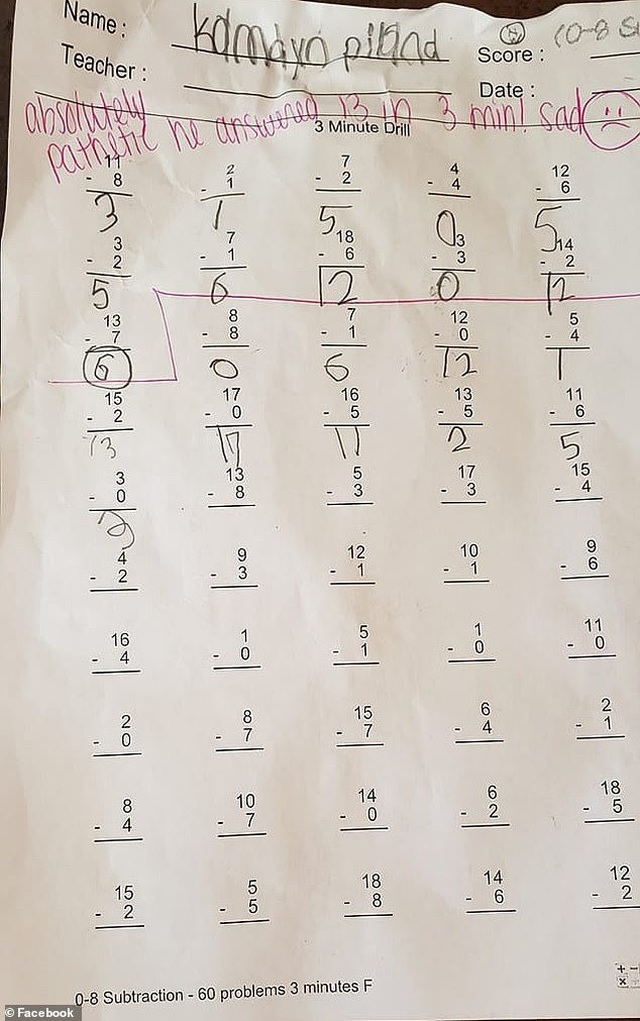 Name: Kamdyn piland
Teacher: Score: 10-8
Date:
absolutely pathetic he answered 13 in 3 min! sad
3 Minute Drill
11 2 7 4 12
- 8 - 1 - 2 - 4 - 6
3 1 5 0 5
3 7 18 3 14
- 2 - 1 - 6 - 3 - 2
5 6 12 0 12
13 8 7 12 5
- 7 - 8 - 1 - 0 - 4
6 0 6 12 1
15 17 16 13 11
- 2 - 0 - 5 - 5 - 6
13 17 11 2 5
3 13 5 17 15
- 0 - 8 - 3 - 3 - 4
4 9 12 10 9
- 2 - 3 - 1 - 1 - 6
16 1 5 1 11
- 4 - 0 - 1 - 0 - 0
2 8 15 6 2
- 0 - 7 - 7 - 4 - 1
8 10 14 6 18
- 4 - 7 - 0 - 2 - 5
15 5 18 14 12
- 2 - 5 - 8 - 6 - 2
0-8 Subtraction - 60 problems 3 minutes F
+ −
x
© Facebook